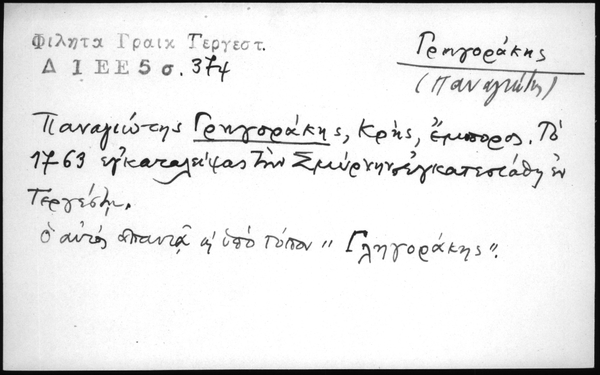 Φιλητα Γραικ Τεργεστ.
Δ 1 ΕΕ5 σ. 374
Γρηγοράκης
(Παναγιώτης)
Παναγιώτης Γρηγοράκης, Κρής, ἔμπορος. Τὸ
1763 ἐγκαταλείψας τὴν Σμύρνην ἐγκατεστάθη ἐν
Τεργέστῃ.
Ὁ αὐτὸς ἀπαντᾷ κ ὑπὸ τύπον "Γληγοράκης".